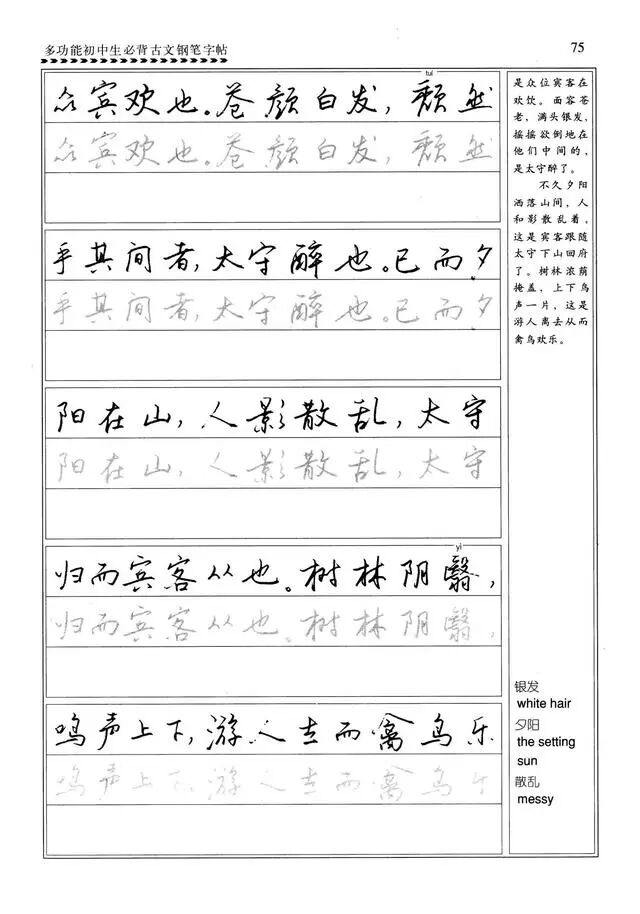 多功能初中生必背古文钢笔字帖
75
tuí
众宾欢也。苍颜白发，颓然
众宾欢也。苍颜白发，颓然
乎其间者，太守醉也。已而夕
乎其间者，太守醉也。已而夕
阳在山，人影散乱，太守
阳在山，人影散乱，太守
yì
归而宾客从也。树林阴翳，
归而宾客从也。树林阴翳，
鸣声上下，游人去而禽鸟乐
鸣声上下，游人去而禽鸟乐
是众位宾客在
欢饮。面容苍
老，满头银发，
摇摇欲倒地在
他们中间的，
是太守醉了。
不久夕阳
洒落山间，人
和影散乱着，
这是宾客跟随
太守下山回府
了。树林浓荫
掩盖，上下鸟
声一片，这是
游人离去从而
禽鸟欢乐。
银发
white hair
夕阳
the setting
sun
散乱
messy